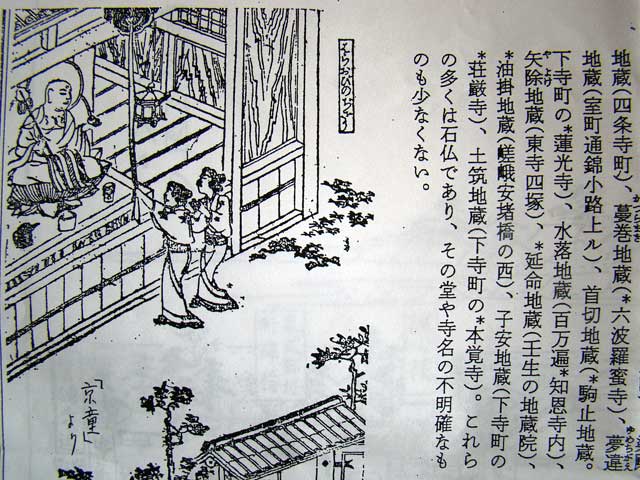 地蔵(四条寺町)、蔓巻地蔵(*六波羅蜜寺)、夢違
地蔵(室町通錦小路上ル)、首切地蔵(*駒止地蔵。
下寺町の*蓮光寺)、水落地蔵(百万遍*知恩寺内)、
矢除地蔵(東寺四塚)、*延命地蔵(壬生の地蔵院)、
*油掛地蔵(嵯峨安堵橋の西)、子安地蔵(下寺町の
*荘厳寺)、土筑地蔵(下寺町の*本覚寺)。これら
の多くは石仏であり、その堂や寺名の不明確なも
のも少なくない。
はらおびのぢざう
「京童」
より